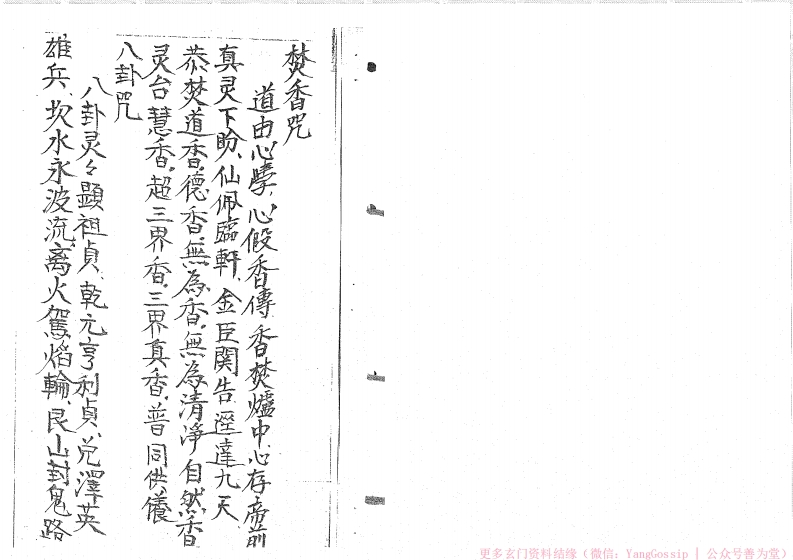 焚香咒
道由心學、心假香傳、香焚爐中、心存帝前
真灵下盼、仙佩臨軒、金臣関告、逕達九天
恭焚道香、德香、無為香、無為清淨自然香
灵台慧香、超三界香、三界真香、普同供儀
八卦咒
八卦灵々顯祖貞、乾元亨利貞、兑澤英
雄兵、坎水永波流、离火駕焰輪、艮山封鬼路
更多玄门资料结缘（微信：YangGossip | 公众号善为堂）